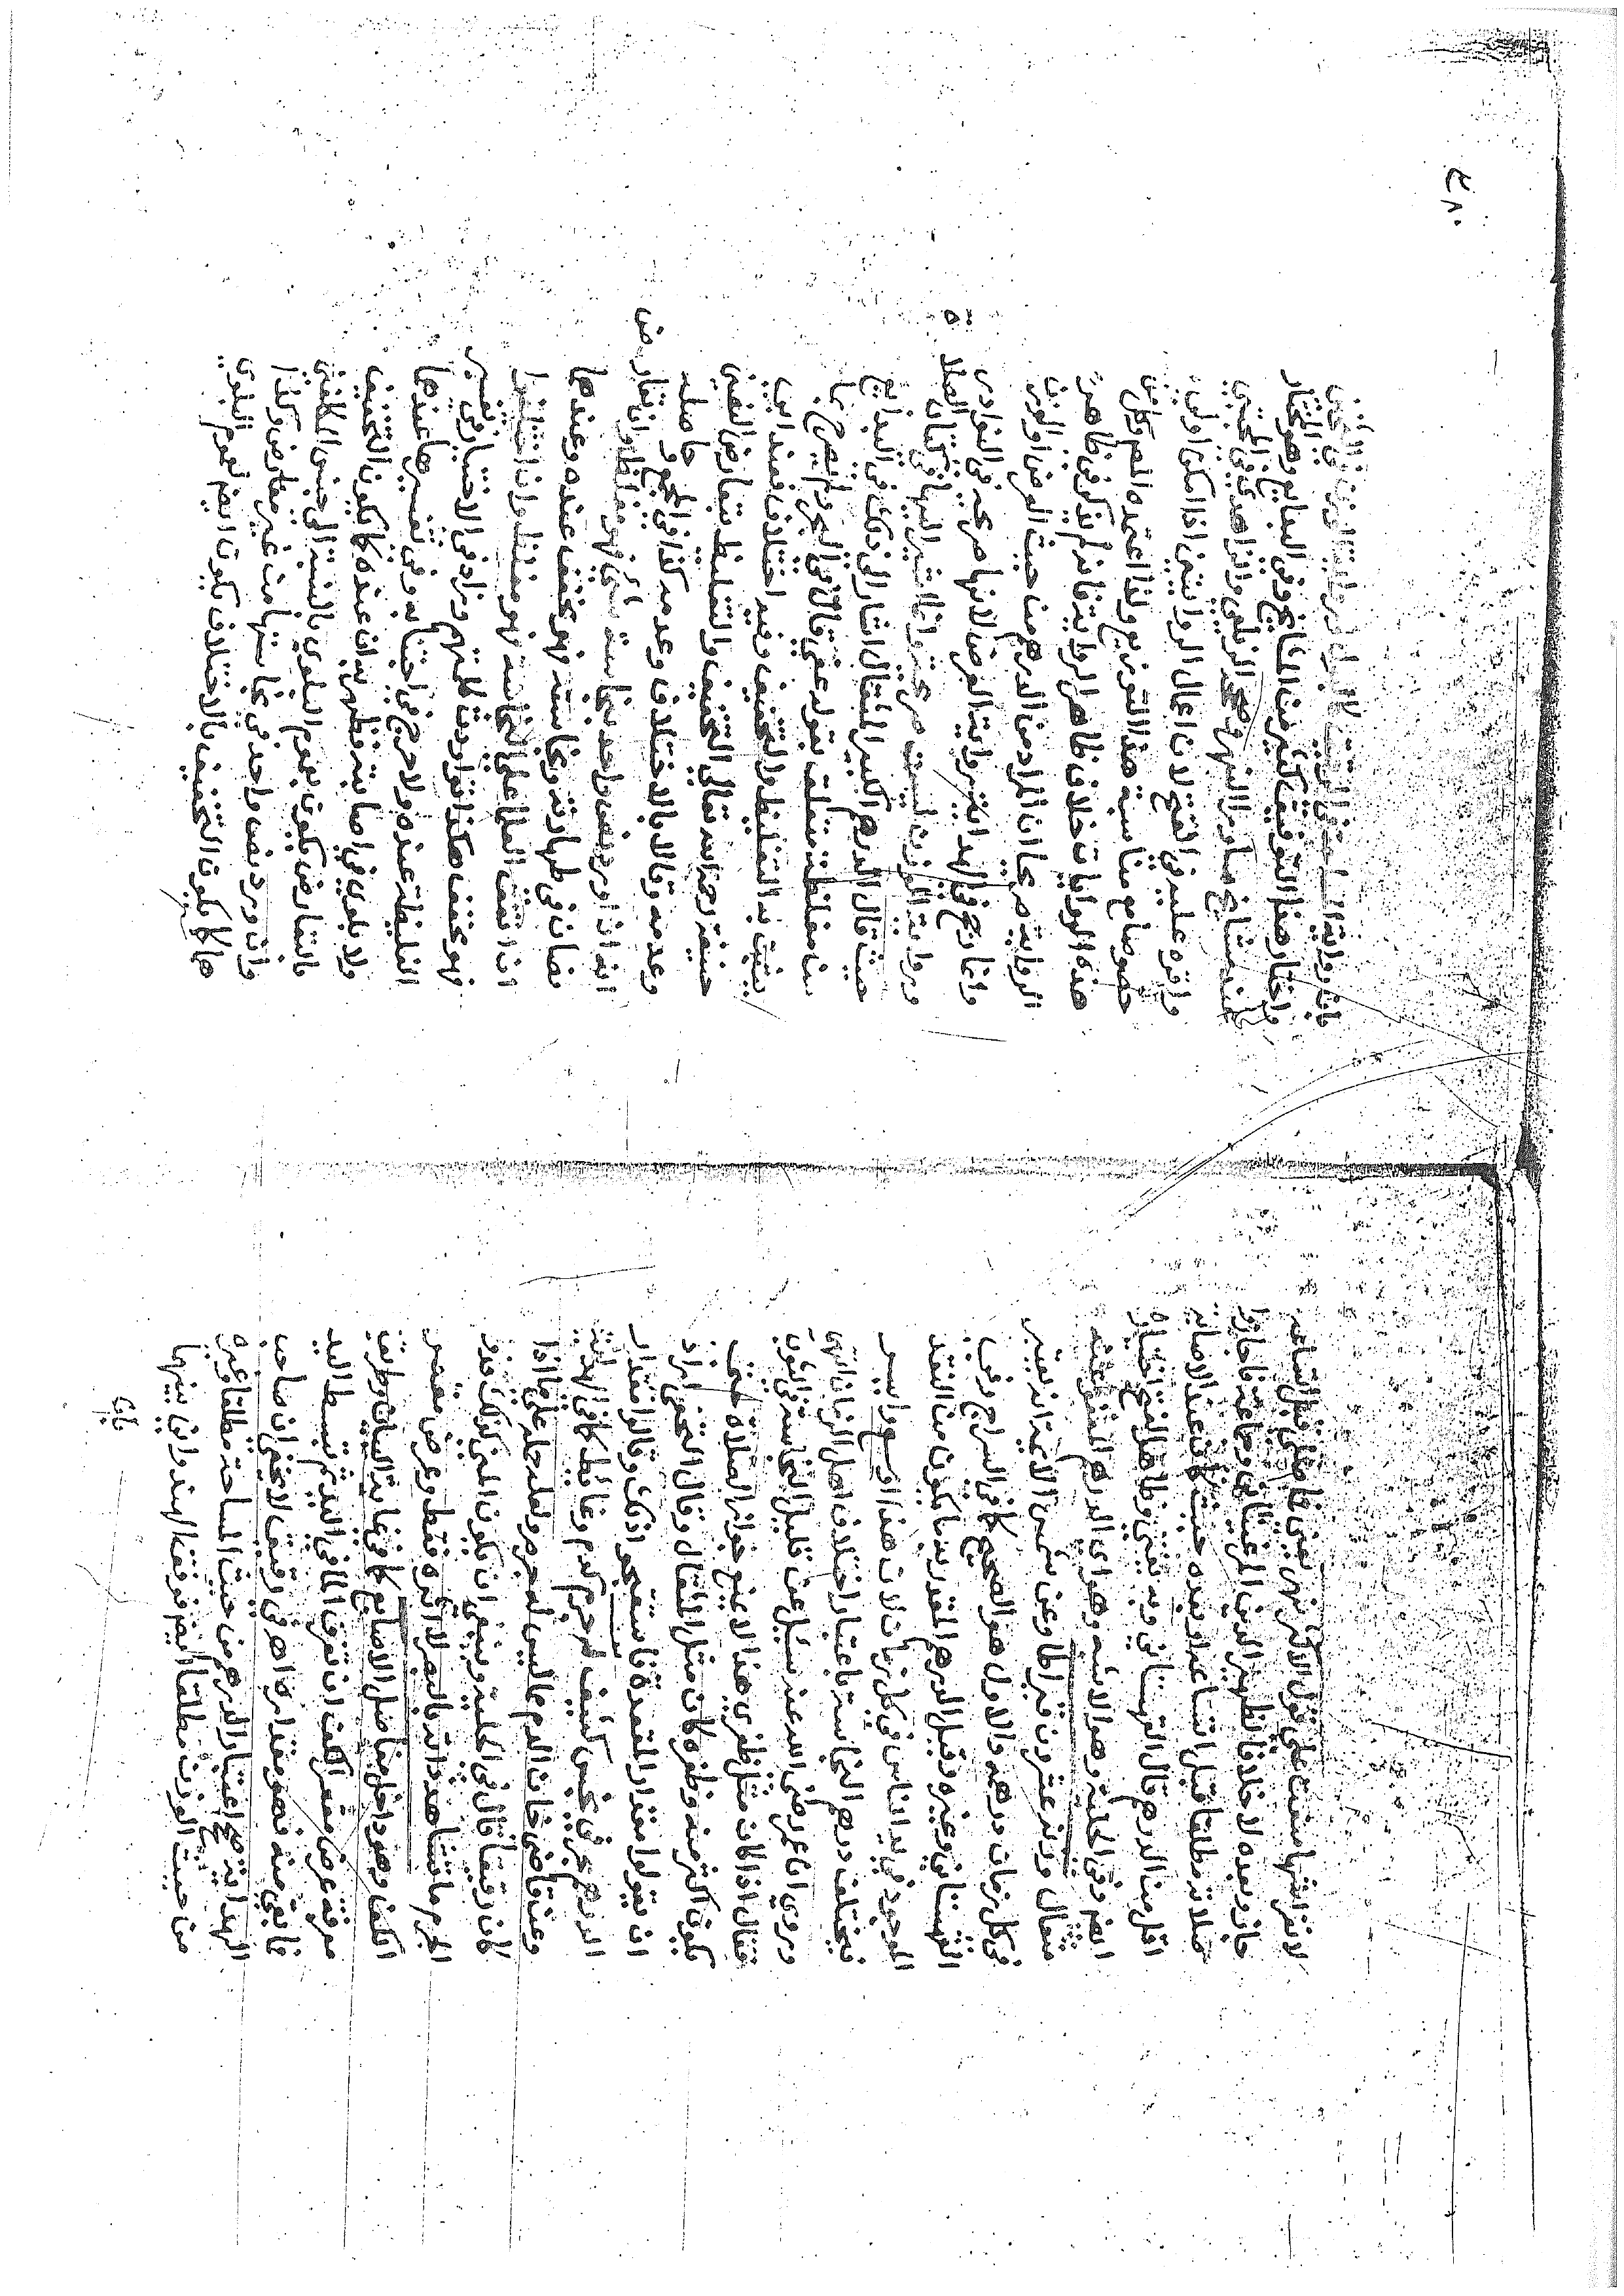 ممتنع على قول الاكثرين يعني قبل
جاز وبعده لا خلافا لظهير الدين المرغيناني وجماعة فاجازوا
صلاته مطلقا قبل اتساعه او بعده حيث كان عند الاصابة
اقل من الدرهم قال القهستاني وبه يفتى وظاهر الفتح اختياره
ايضم وفي الحلية وهو الاشبه وهو اي الدرهم المعفو عنه
مثقال وزنه عشرون قيراطا وعن شمس الائمة انه يعتبر
في كل زمان درهمه والاول هو الصحيح كما في السراج وفي
القهستاني وغيره وقيل الدرهم المقدر به ما يكون من النقد
الموجود في يد الناس في كل زمان لان هذا اوسع وايسر
فيختلف درهم النجاسة باعتبار اختلاف اهل الزمان انتهى
وروي ان عمر رضي الله عنه سئل عن قليل النجاسة في الثوب
فقال اذا كان مثل ظفري هذا لا يمنع جواز الصلاة حتى
يكون اكثر منه وظفره كان مثل المثقال وقال النخعي اراد
ان يقولوا مقدار المقعدة فاستقبحوا ذلك وقالوا مقدار
الدرهم في نجس كثيف له جرم كدم وغائط كما في الهداية
وعن قاضي خان الدم مما ليس له جرم ولعله حمله على ما اذا
كان رقيقا قال في الحلية وينبغي ان يكون المني كذلك
الجرم ما تشاهد ذاته بالبصر لا اثره فقط وعرض مقعر
الكف وهو داخل مفاصل الاصابع كما في غاية البيان وطريق
معرفة عرض مقعر الكف ان تغرف الماء في اليد ثم تبسط اليد
فما بقي منه فهو مقداره اهـ لا يخفى ان صاحب
الهداية صحح اعتبار الدرهم من حيث المساحة مطلقا وغيره
من حيث الوزن مطلقا ايضم فوفق الهندواني بينهما
فان
٤٨٠
فان رواية المساحة في الرقيق كالبول ورواية الوزن في الثخين
واختار هذا التوفيق كثير من المشايخ وفي البدايع وهو المختار
عند مشايخ ما وراء النهر وصححه الزيلعي والزاهدي في المجتبى
واقره عليه في الفتح لان اعمال الروايتين اذا امكن اولى
خصوصا مع مناسبة هذا التوزيع ولذا اعتمده المص وكان
هذه الروايات خلاف ظاهر الرواية فانه لم يذكر في ظاهر
الرواية صريحا ان المراد من الدرهم من حيث العرض او الوزن
وانما رجح في الهداية رواية العرض لانها صريحة في النوادر
ورواية الوزن ليست صريحة وانما اشير اليها في كتاب الصلاة
حيث قال الدرهم الكبير المثقال اشار الى ذلك في البدايع
من مغلظة متعلقة بقوله عفي قال في البحر ثم اعلم ان ما
يثبت به التغليظ والتخفيف فيه اختلاف فعند ابي
حنيفة رحمه الله تعالى التخفيف والتغليظ بتعارض النصين
وعدمه وقالا بالاختلاف وعدمه كذا في المجمع وحاصله
انه ان ورد نص واحد بنجاسة شيء فهو مغلظ وان تعارض
نصان في طهارته ونجاسته فهو مخفف عنده وعندهما
ان اتفق العلماء على النجاسة فهو مغلظ وان اختلفوا
فهو مخفف هكذا تواردت كلمتهم وزاد في الاختيار في تفسير
الغليظة عنده ولا حرج في اجتنابه وفي تفسيرها عندهما
ولا بلوى في اصابته فظهر به ان عنده كما يكون التخفيف
بالتعارض يكون بعموم البلوى بالنسبة الى جنس المكلفين
وان ورد نص واحد في نجاسته من غير معارض وكذا
هما كما يكون التخفيف بالاختلاف يكون ايضم بعموم البلوى